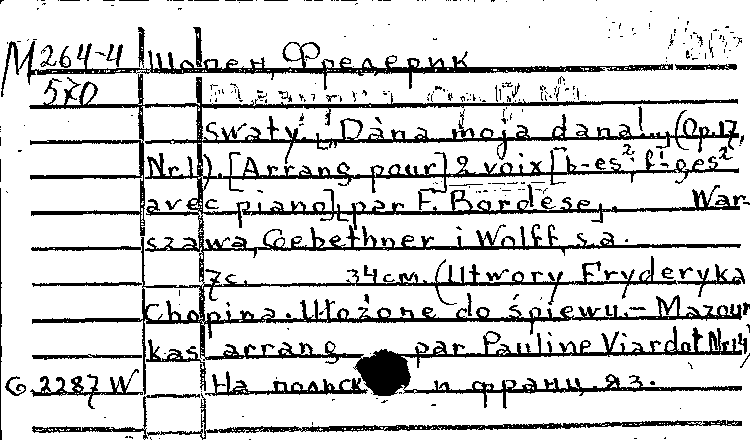 M 264-4 Шопен, Фредерик
570
Swaty. ["Dana moja dana!..," (Op.17,
Nr.1). [Arrang. pour] 2 voix [b-es², f-ges²
avec piano], par F. Bordèse,. War-
szawa, Gebethner i Wolff, s.a.
7c. 34cm. (Utwory Fryderyka
Chopina. Ułożone do śpiewu. - Mazour
kas arrang par Pauline Viardot Nr.14)
G.2287 W На польск и франц. яз.